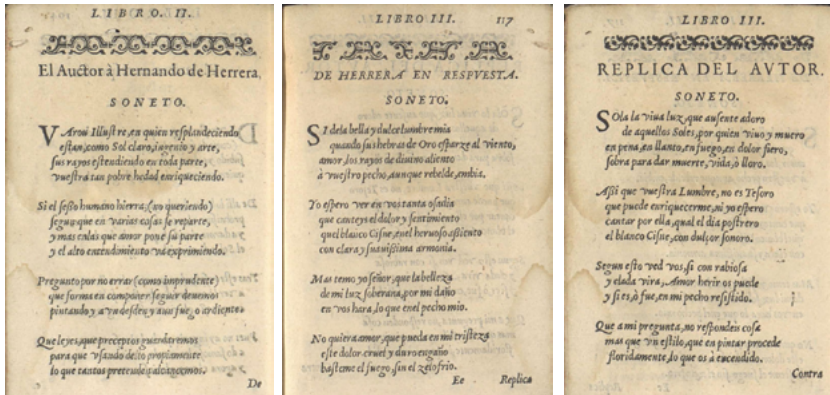 LIBRO. II.
El Auctor à Hernando de Herrera,
SONETO.
VAron Illustre, en quien resplandeciendo
estan, como Sol claro, ingenio y arte,
sus rayos estendiendo en toda parte,
vuestra tan pobre hedad enriqueciendo.
Si el sesso humano hierra, (no queriendo)
segun que en varias cosas se reparte,
y mas en las que amor pone su parte
y el alto entendimiento va exprimiendo.
Pregunto por no errar (como imprudente)
que forma en componer seguir deuemos
pintando y a vn desden y a un fuego ardiente.
Que leyes, que preceptos guardaremos
para que vsando desto propiamente
lo que tantos pretenden
De
LIBRO III. 117
DE HERRERA EN RESPVESTA.
SONETO.
SI de la bella y dulce lumbre mia
quando sus hebras de Oro esparze al viento,
amor, los rayos de diuino aliento
à vuestro pecho, aunque rebelde, embia.
Yo espero ver en vos tanta osadia
que canteys el dolor y sentimiento
quel blanco Cisne, en el hermoso assiento
con clara y suauissima armonia.
Mas temo yo señor, que la belleza
de mi luz soberana, por mi daño
en vos hara, lo que en el pecho mio.
No quiera amor, que pueda en mi tristeza
este dolor cruel y duro engaño
basteme el fuego, sin el zelo frio.
Ee Replica
LIBRO III.
REPLICA DEL AVTOR.
SONETO.
SOla la viua luz, que ausente adoro
de aquellos Soles, por quien viuo y muero
en pena, en llanto, en fuego, en dolor fiero,
sobra para dar muerte, vida, ò lloro.
Assi que vuestra Lumbre, no es Tesoro
que puede enriquecerme, ni yo espero
cantar por ella, qual el dia postrero
el blanco Cisne, con dulçor sonoro.
Segun esto ved vos, si con rabiosa
y elada vira, Amor heriros puede
y si es, ò fue, en mi pecho resistido.
Que a mi pregunta, no respondeis cosa
mas que vn estilo, que en pintar procede
floridamente, lo que os à encendido.
Contra